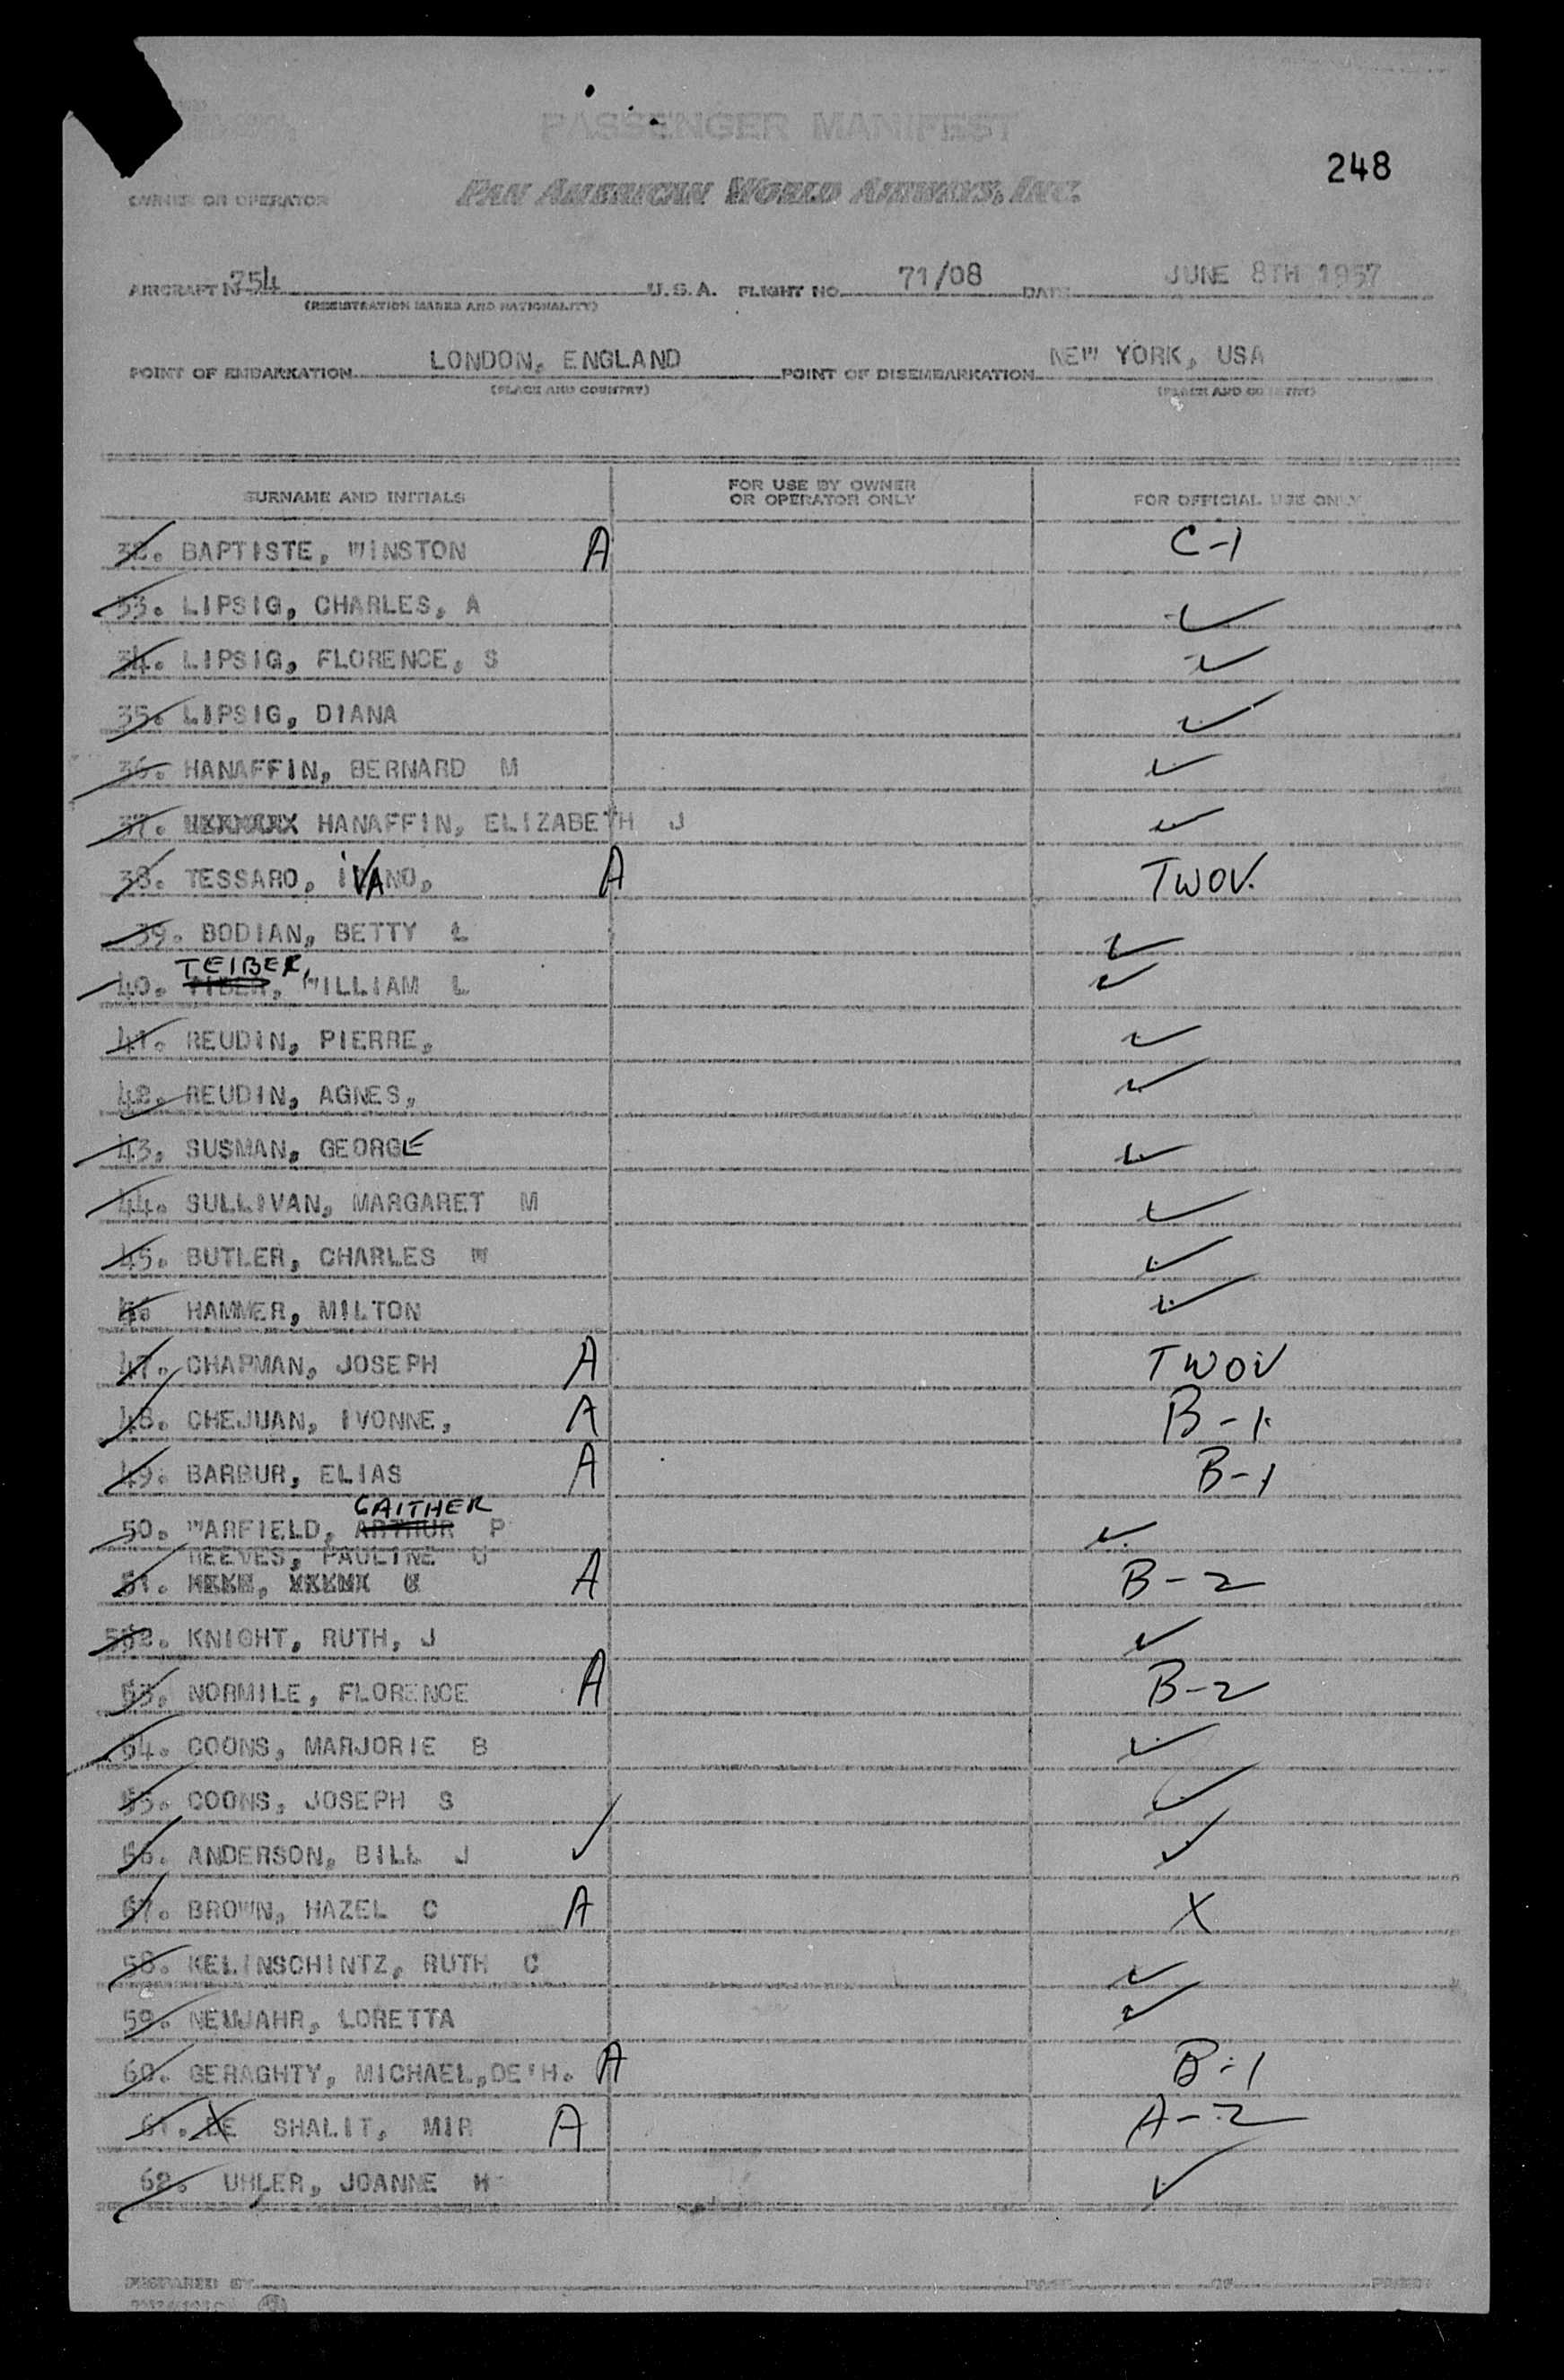 PASSENGER MANIFEST
248
OWNER OR OPERATOR PAN AMERICAN WORLD AIRWAYS, INC.
AIRCRAFT N754 U.S.A. FLIGHT NO. 71/08 DATE JUNE 8TH 1957
(REGISTRATION MARKS AND NATIONALITY)
POINT OF EMBARKATION LONDON, ENGLAND POINT OF DISEMBARKATION NEW YORK, USA
(PLACE AND COUNTRY) (PLACE AND COUNTRY)
SURNAME AND INITIALS FOR USE BY OWNER OR OPERATOR ONLY FOR OFFICIAL USE ONLY
32. BAPTISTE, WINSTON A C-1
33. LIPSIG, CHARLES, A ✓
34. LIPSIG, FLORENCE, S ✓
35. LIPSIG, DIANA ✓
36. HANAFFIN, BERNARD M ✓
37. HANAFFIN, ELIZABETH J ✓
38. TESSARO, IVANO, A TWOV.
39. BODIAN, BETTY L ✓
TEIBER,
40. WILLIAM L ✓
41. REUDIN, PIERRE, ✓
42. REUDIN, AGNES, ✓
43. SUSMAN, GEORGE ✓
44. SULLIVAN, MARGARET M ✓
45. BUTLER, CHARLES W ✓
46 HAMMER, MILTON ✓
47. CHAPMAN, JOSEPH A TWOV
48. CHEJUAN, IVONNE, A B-1
49. BARBUR, ELIAS A B-1
GAITHER
50. WARFIELD, ARTHUR P ✓
REEVES, PAULINE U
51. A B-2
552. KNIGHT, RUTH, J ✓
53. NORMILE, FLORENCE A B-2
54. COONS, MARJORIE B ✓
55. COONS, JOSEPH S ✓
56. ANDERSON, BILL J ✓ ✓
57. BROWN, HAZEL C A X
58. KELINSCHINTZ, RUTH C ✓
59. NEUJAHR, LORETTA ✓
60. GERAGHTY, MICHAEL,DE'H. A B-1
61. DE SHALIT, MIR A A-2
62. UHLER, JOANNE H ✓
PREPARED BY PAGE OF PAGES